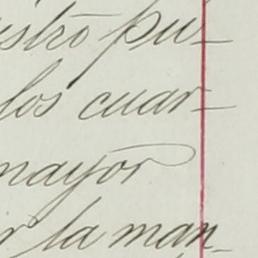 istró pu-
los cuar-
mayor
r la man-